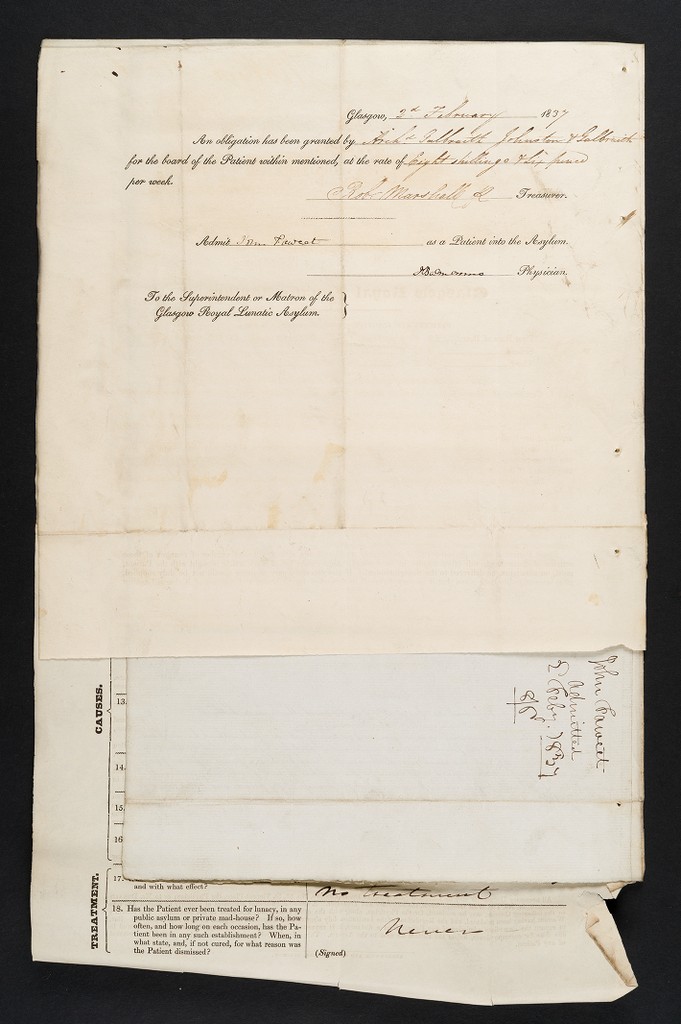 Glasgow, 2d February 1837
An obligation has been granted by Archd Galbraith Johnston & Galbraith
for the board of the Patient within mentioned, at the rate of Eight shillings & six pence
per week.
Rob Marshall Treasurer.
Admit John Fawcet as a Patient into the Asylum.
Physician.
To the Superintendent or Matron of the
Glasgow Royal Lunatic Asylum.
John Fawcet
Admitted
2 Feby. 1837
8/6
CAUSES.
13.
14.
15.
16
TREATMENT.
17.
and with what effect?
No treatment
18. Has the Patient ever been treated for lunacy, in any
public asylum or private mad-house? If so, how
often, and how long on each occasion, has the Pa-
tient been in any such establishment? When, in
what state, and, if not cured, for what reason was
the Patient dismissed?
Never
(Signed)